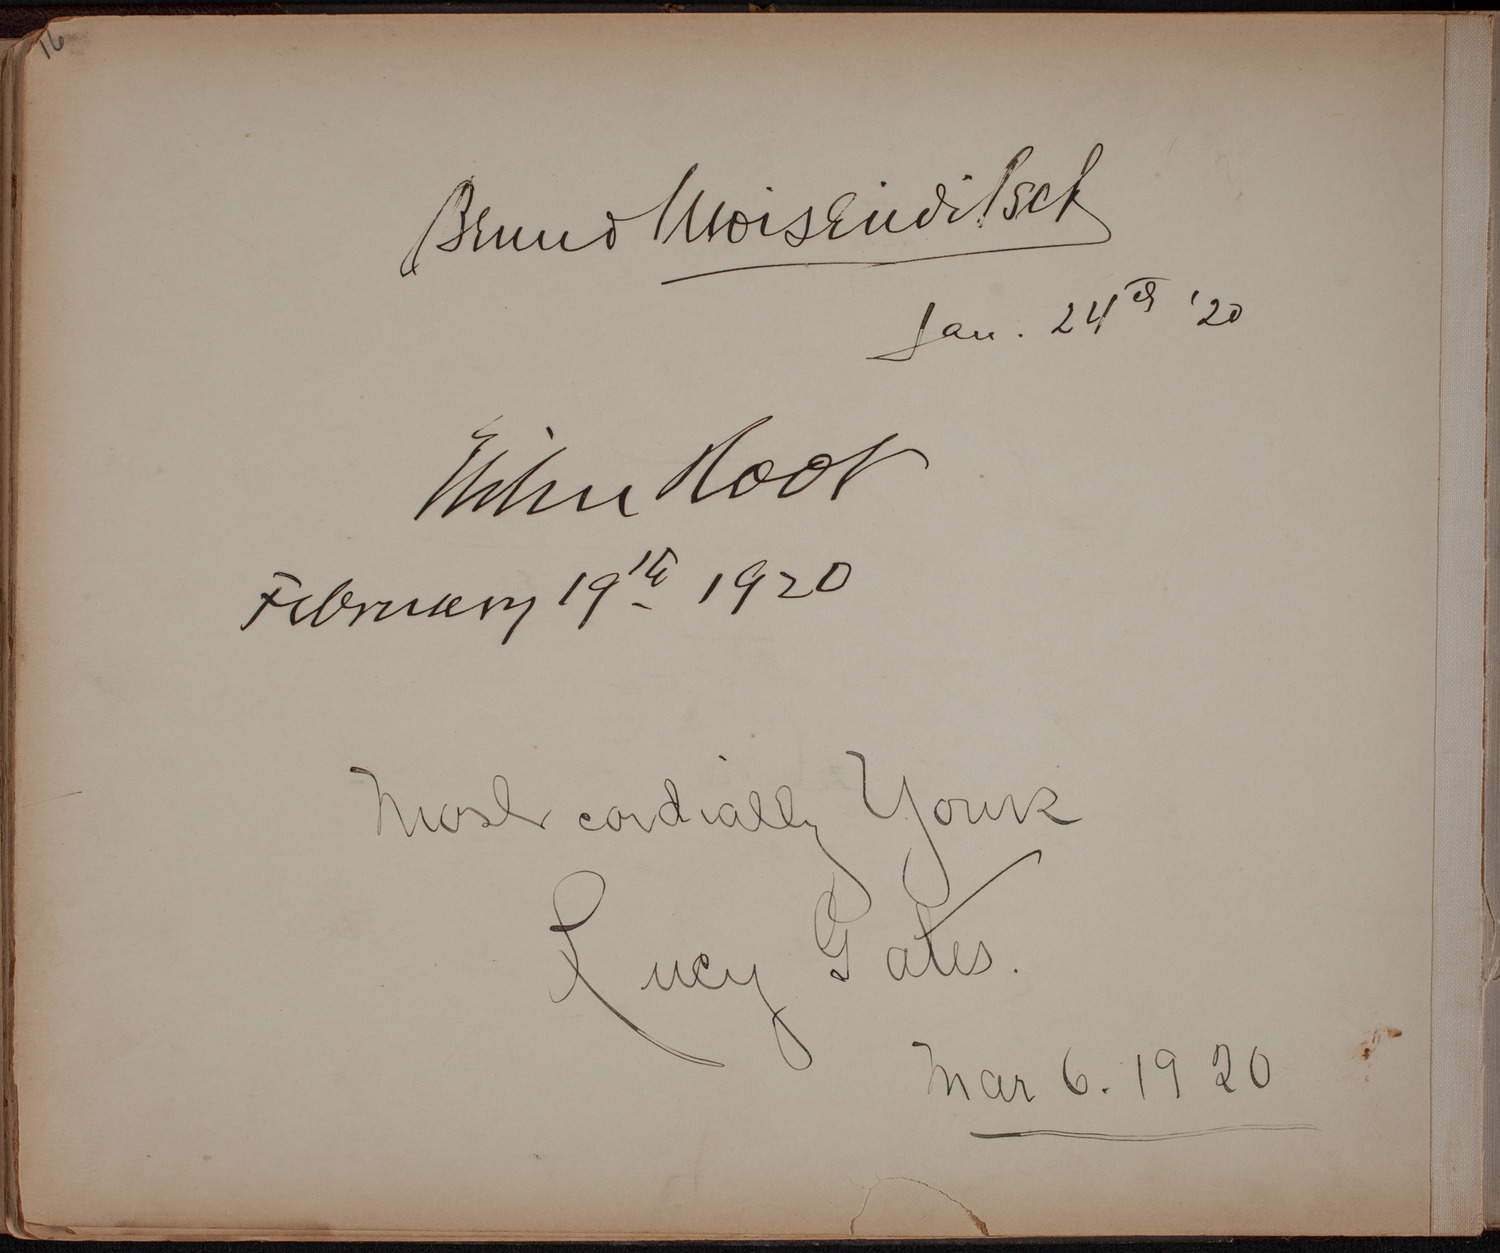 16
Benno Moiseiwitsch
Jan. 24th '20
Elihu Root
February 19th 1920
Most cordially Yours
Lucy Gates.
Mar 6. 1920